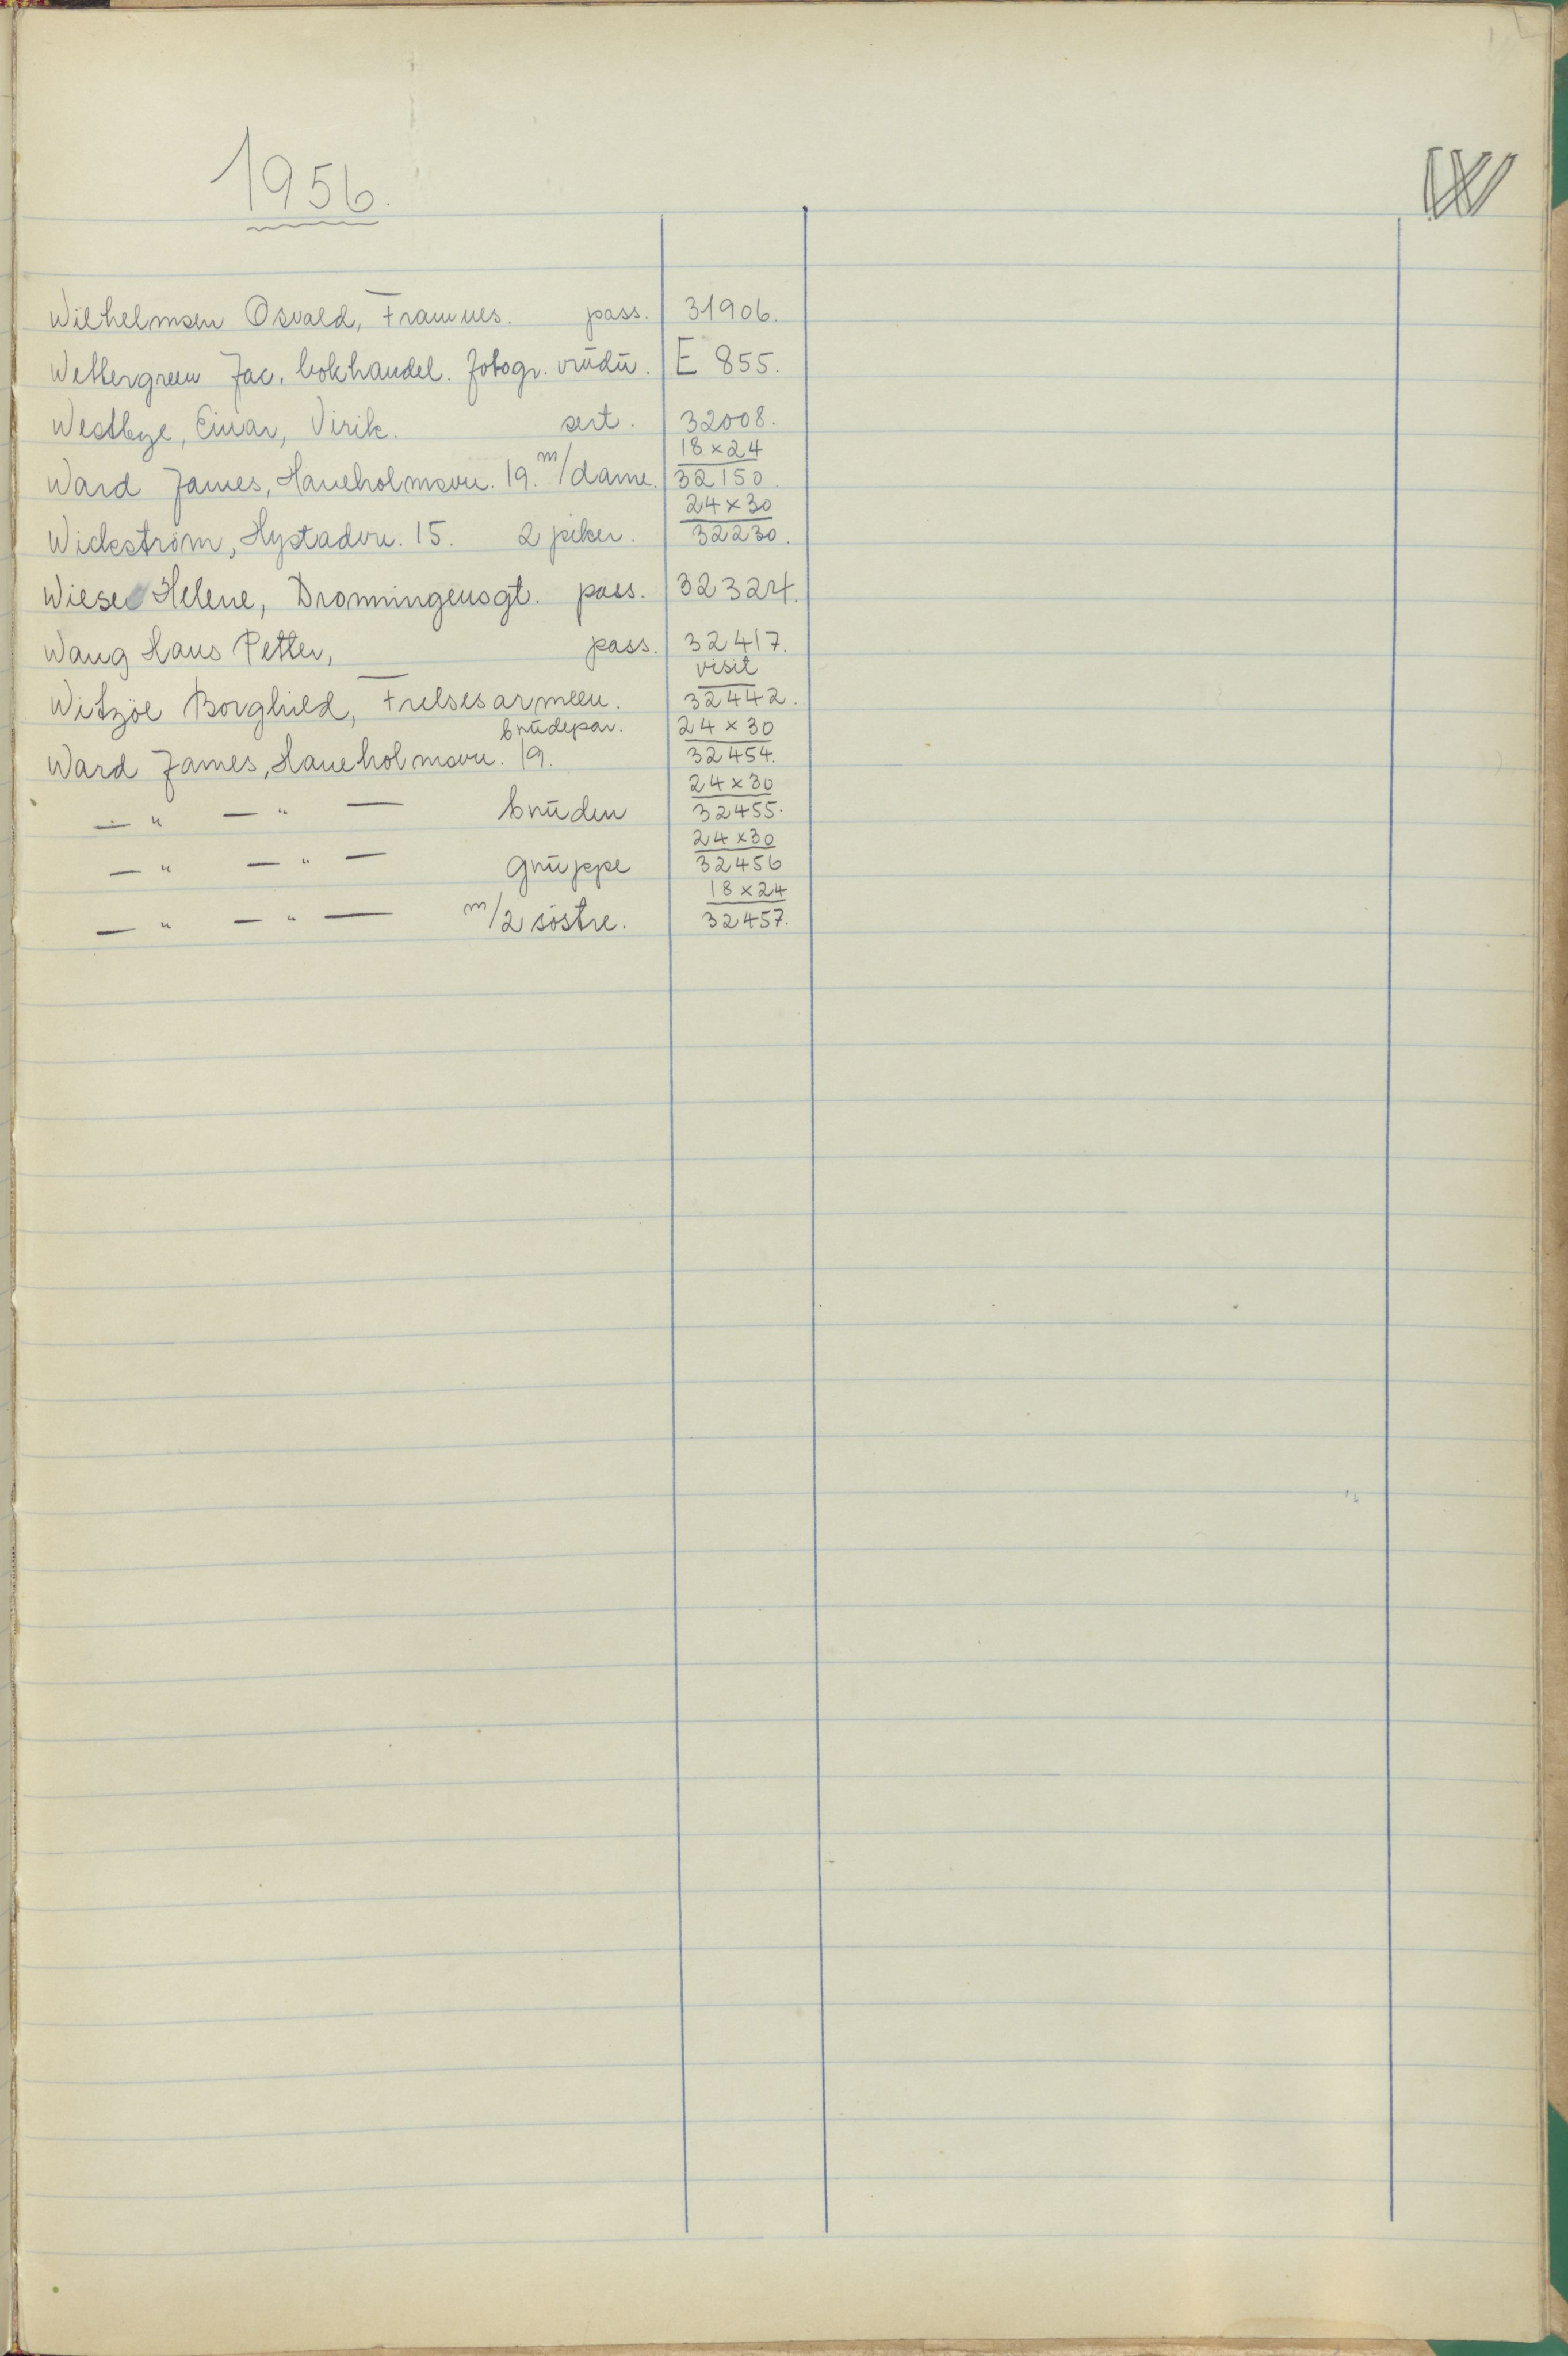 1956.
W
Wilhelmsen Osvald, Framnes. pass. 31906.
Wettergreen Jac. bokhandel. fotogr. vindu. E 855.
Westbye, Einar, Virik. sert. 32008.
18 x 24
Ward James, Haneholmsvn. 19. m/dame. 32150.
24 x 30
Wickström, Hystadvn. 15. 2 piker. 32230.
Wiese Helene, Dronningensgt. pass. 32324.
Wang Hans Petter, pass. 32417.
visit
Witzöe Borghild, Frelsesarmeen. 32442.
brudepar. 24 x 30
Ward James, Haneholmsvn. 19. 32454.
24 x 30
— " — " — bruden 32455.
24 x 30
— " — " — gruppe 32456
18 x 24
— " — " — m/2 söstre. 32457.